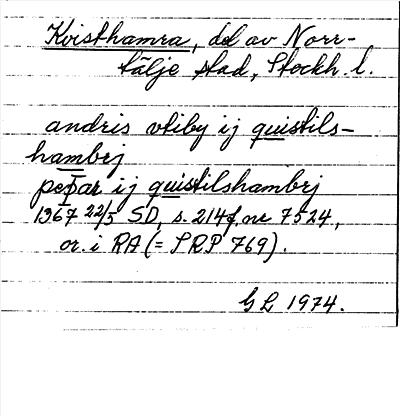 Kvisthamra, del av Norr-
tälje stad, Stockh. l.
andris vtiby ij quistils-
hambrj
petar ij quistilshambrj
1367 22/5 SD, s. 214 f. nr 7524,
or. i RA (= SRP 769).
GL 1974.